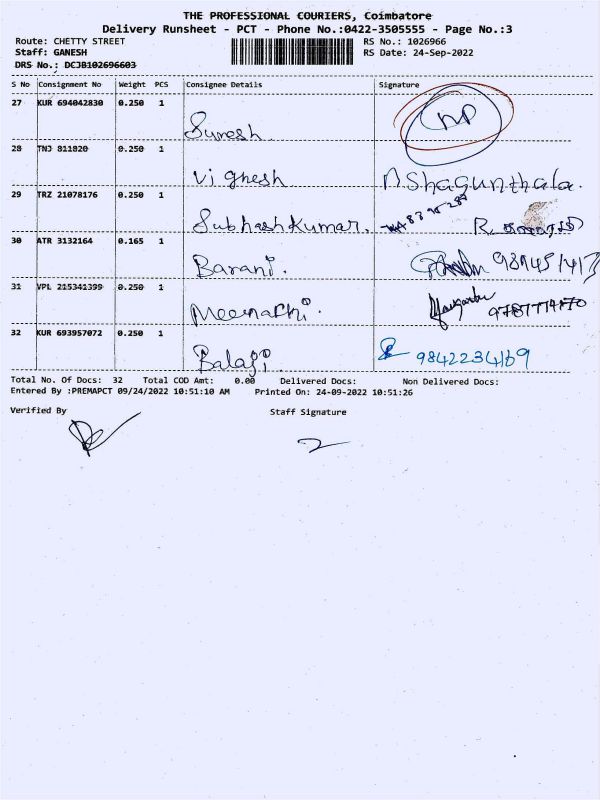 THE PROFESSIONAL COURIERS, Coimbatore
Delivery Runsheet - PCT - Phone No.:0422-3505555 - Page No.:3
Route: CHETTY STREET RS No.: 1026966
Staff: GANESH RS Date: 24-Sep-2022
DRS No.: DCJB102696603
S No Consignment No Weight PCS Consignee Details Signature
27 KUR 694042830 0.250 1 Suresh
28 TNJ 811820 0.250 1 Vignesh N Shagunthala.
29 TRZ 21078176 0.250 1 Subhash Kumar. R.
30 ATR 3132164 0.165 1 Barani.
31 VPL 215341399 0.250 1 Meenakhi.
32 KUR 693957072 0.250 1 Balaji 9842234169
Total No. Of Docs: 32 Total COD Amt: 0.00 Delivered Docs: Non Delivered Docs:
Entered By :PREMAPCT 09/24/2022 10:51:10 AM Printed On: 24-09-2022 10:51:26
Verified By Staff Signature